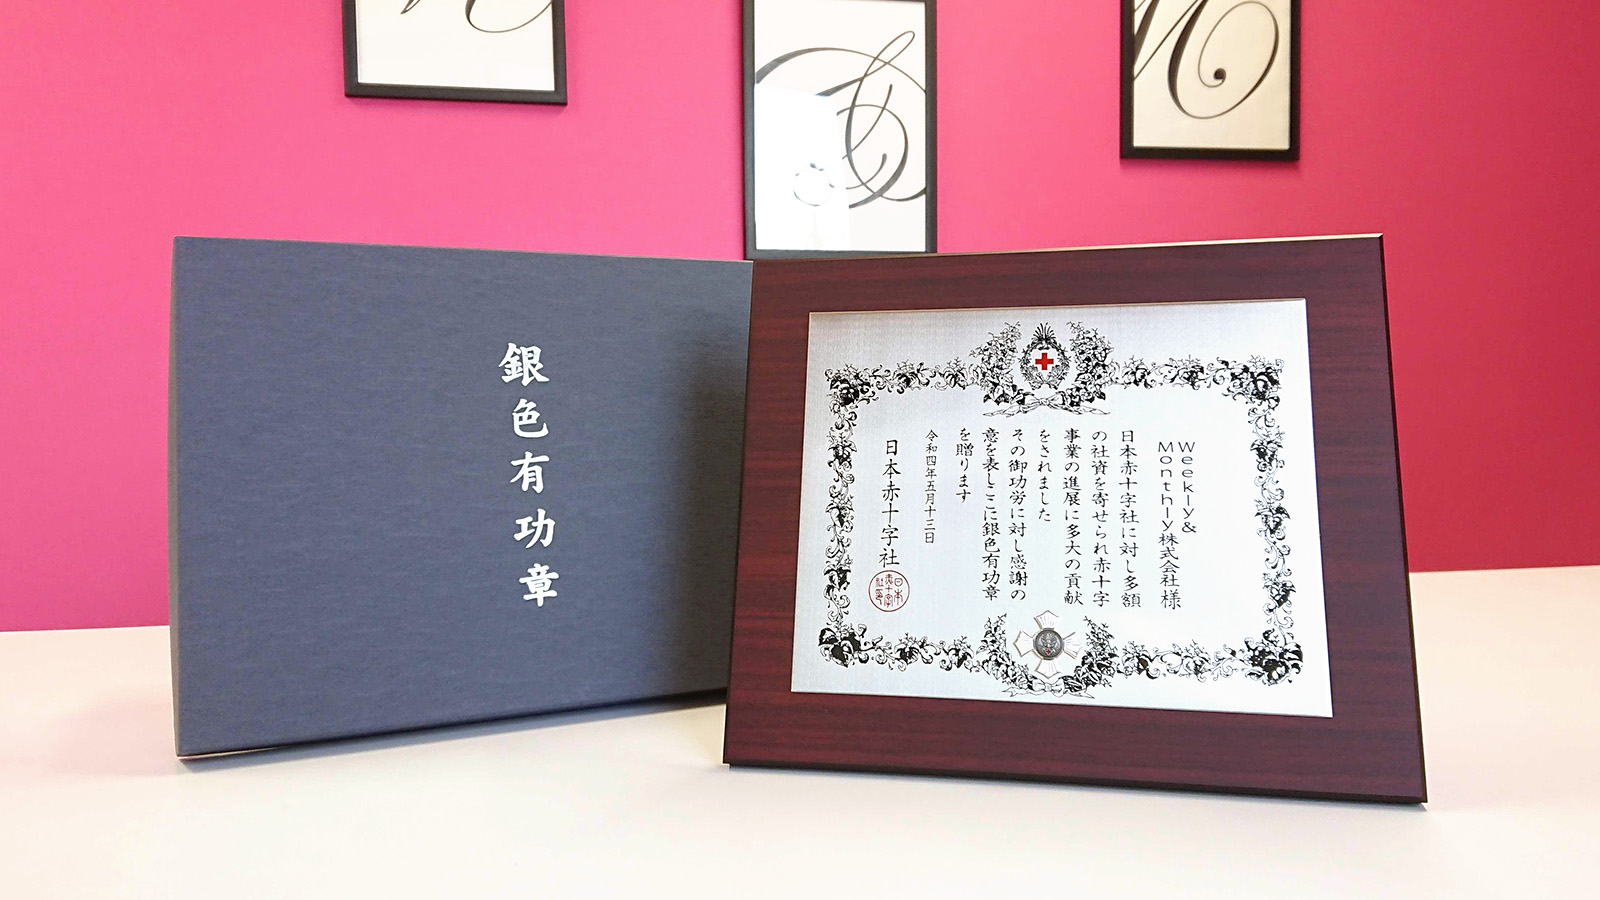 銀色有功章
Weekly&
Monthly株式会社 様
日本赤十字社に対し多額
の社資を寄せられ赤十字
事業の進展に多大の貢献
をされました
その御功労に対し感謝の
意を表しここに銀色有功章
を贈ります
令和四年五月十三日
日本赤十字社